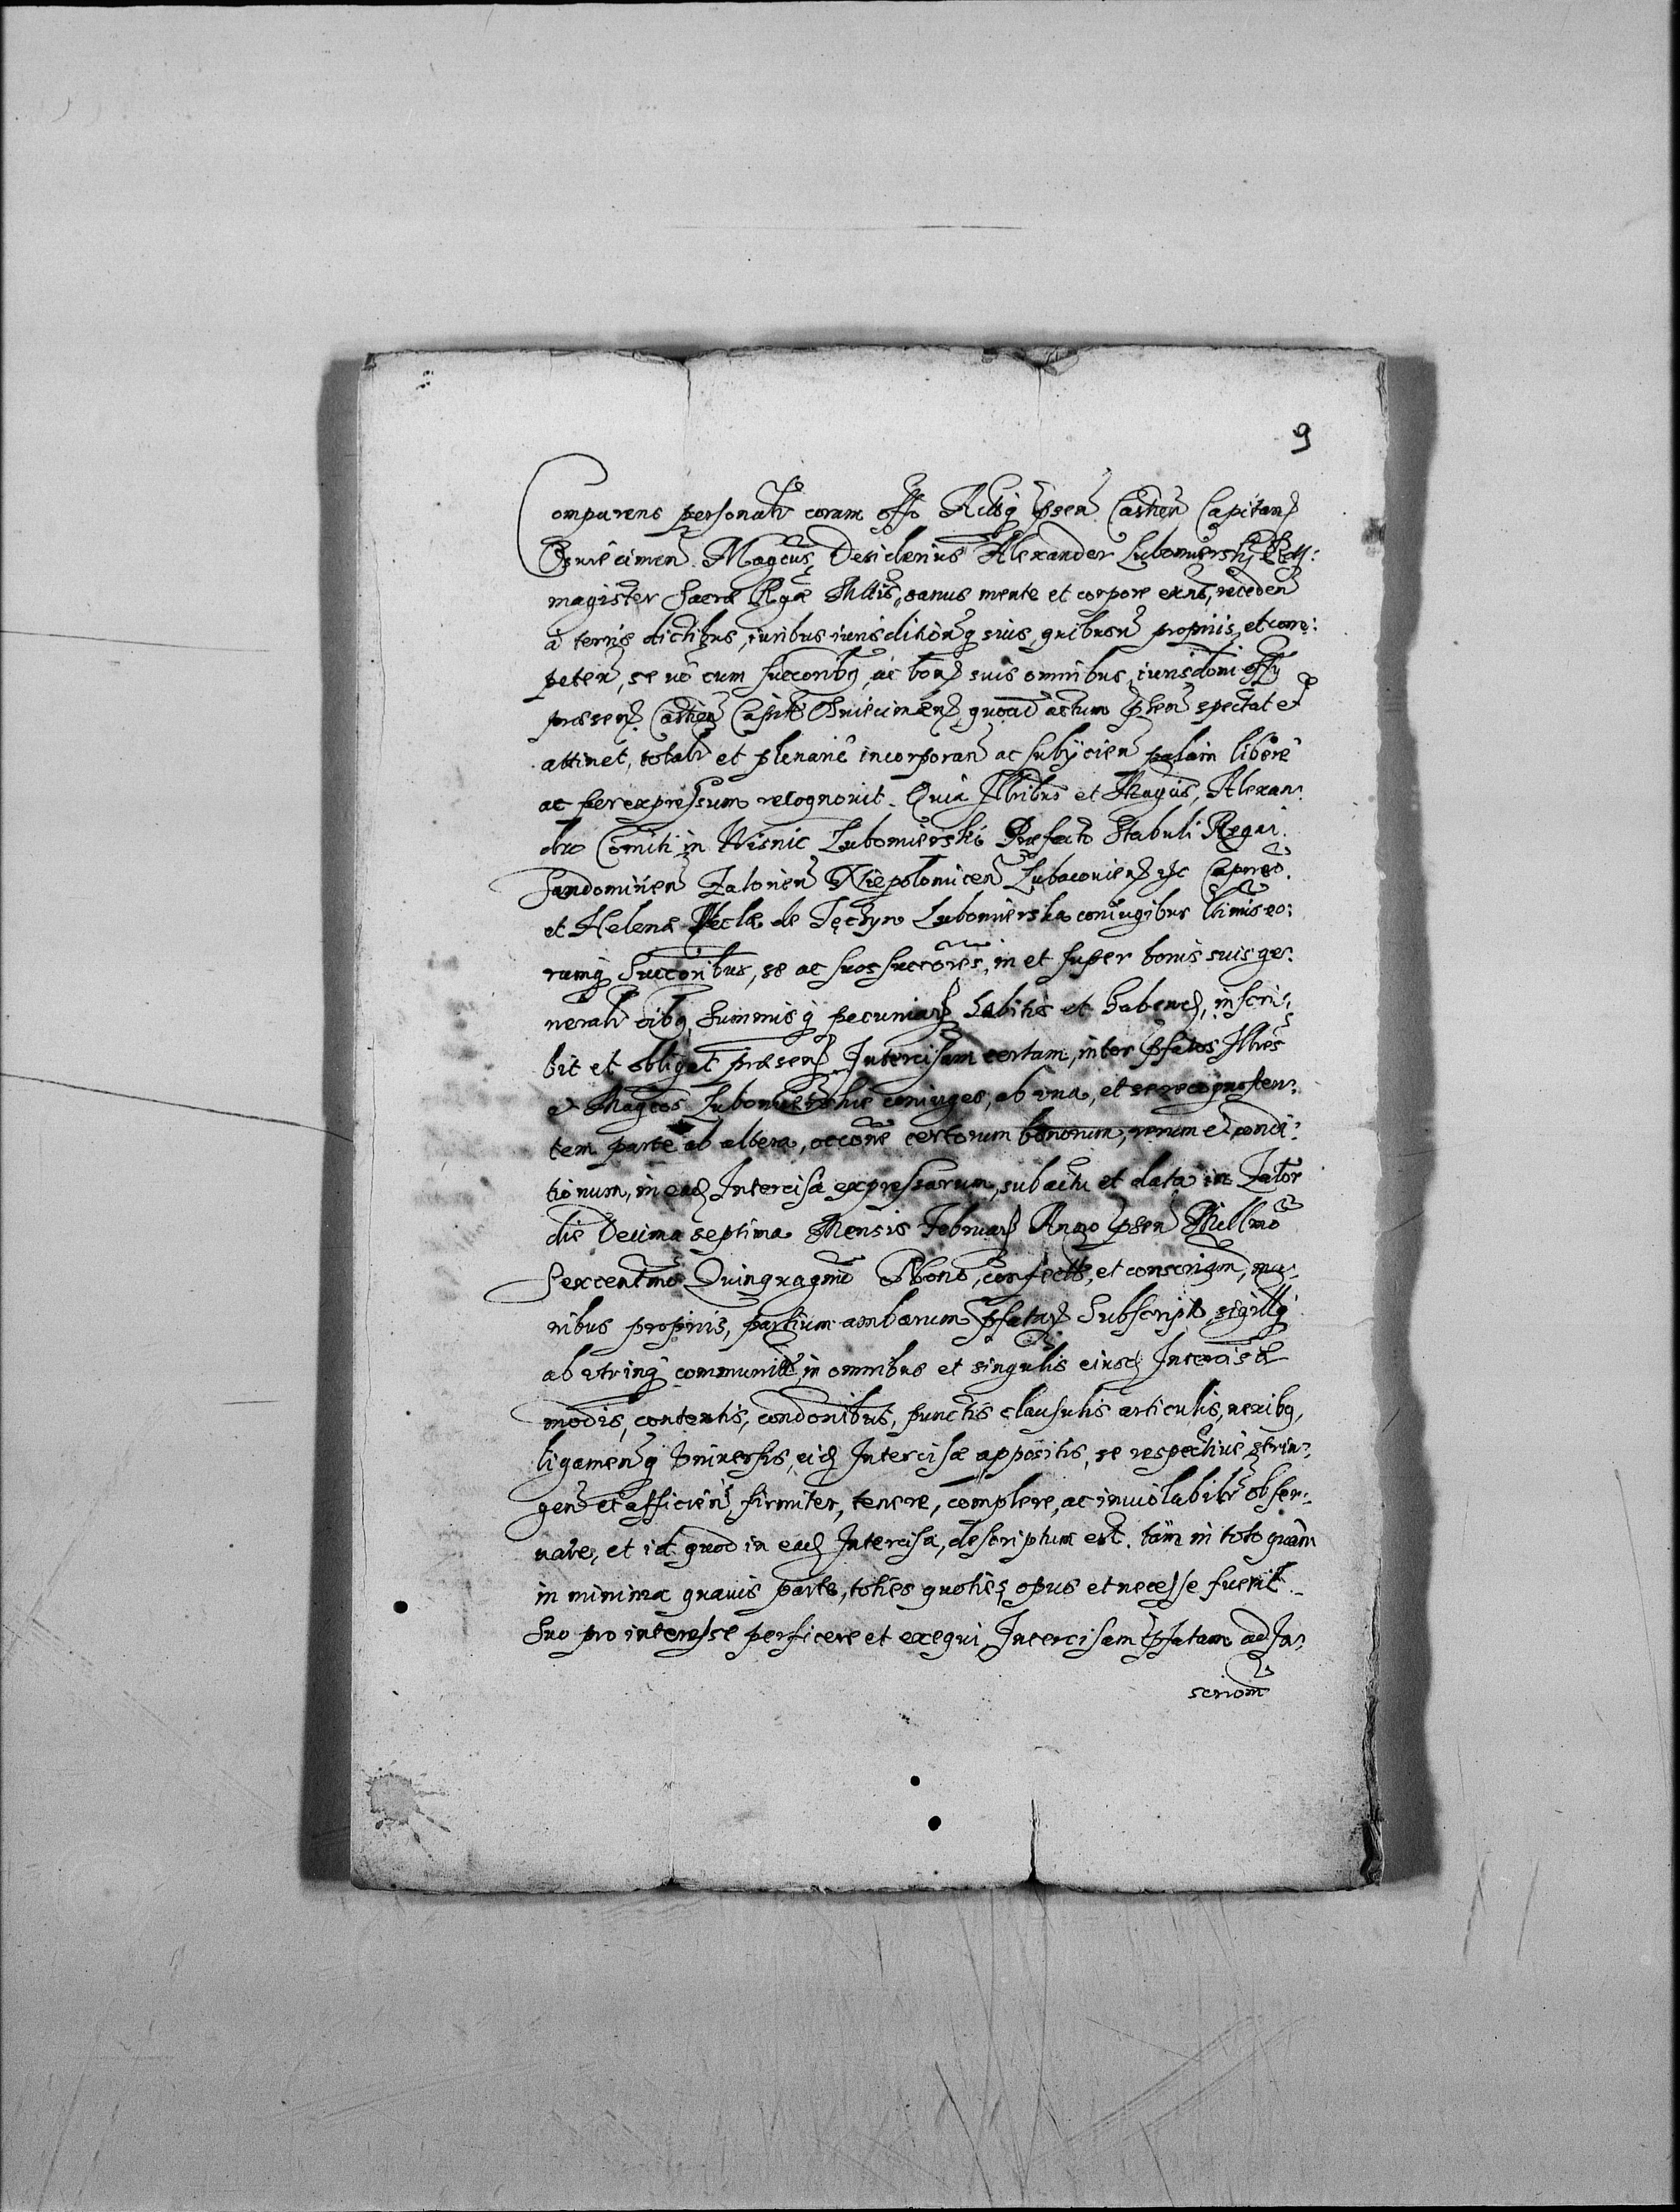 9
Comparens personalr coram offo Actisq psen Castren Capitan
Osuiecimen Magcus Desiderius Alexander Lubomierskj
magister Sacræ Rgæ Mttis, sanus mente et corpore exns, receden
à terris dictibus, iuribus iurisditionq suis, quibusn propriis, et com:
peten, se uó cum succoribq, ac bon suis omnibus, iurisdoni offy
præsen Castren Capitli Osuiecimen quoad actum psen spectat et
attinet, totalr et plenarié incorporan ac subÿcien palam liberè
ac per expressum recognouit. Quia Illribus et Magcis, Alexan:
dro Comiti in Wisnic Lubomierski Præfecto Stabuli Regni
Sandomirien Zatorien Niepolomicen Lubaczouien etc Capneo.
et Helenæ Teclæ de Tęczyn Lubomierska coniugibus ltimis eo:
rumq Succoribus, se ac suos succores, in et super bonis suis ge:
neralr oibq, Summis q pecuniar habitis et habend, inscri:
bit et obligat præsen Intercisam certam, inter psatos Illres
et Magcos Lubomierskie coniuges, ab vna, et se recognoscen:
tem parte ab altera, occone certorum bonorum, rerum et condi:
tionum, in ead Intercisa expressarum, sub actu et data in Zator
die Decima septima Mensis Februar Anno psen Millmo
Sexcentmo Quinquagmo Nono, confectã, et conscriptam, ma:
nibus propriis, partium ambarum psatar Subscriptã, sigillq
ab vtrinq communitã, in omnibus et singulis eiusd Intercisæ
modis, contentis, condonibus, punctis clausulis articulis, nexibq,
ligamen q Vniuersis, eid Intercisæ appositis, se respectiuè strin:
gen et afficien, firmiter, tenere, complere, ac inuiolabilr obser:
uare, et id quod in ead Intercisa, descriptum est. tam in toto quàm
in minima quauis parte, toties quoties opus et necesse fuerit
Suo pro interesse perficere et exequi Intercisam psatam ad In:
scriom